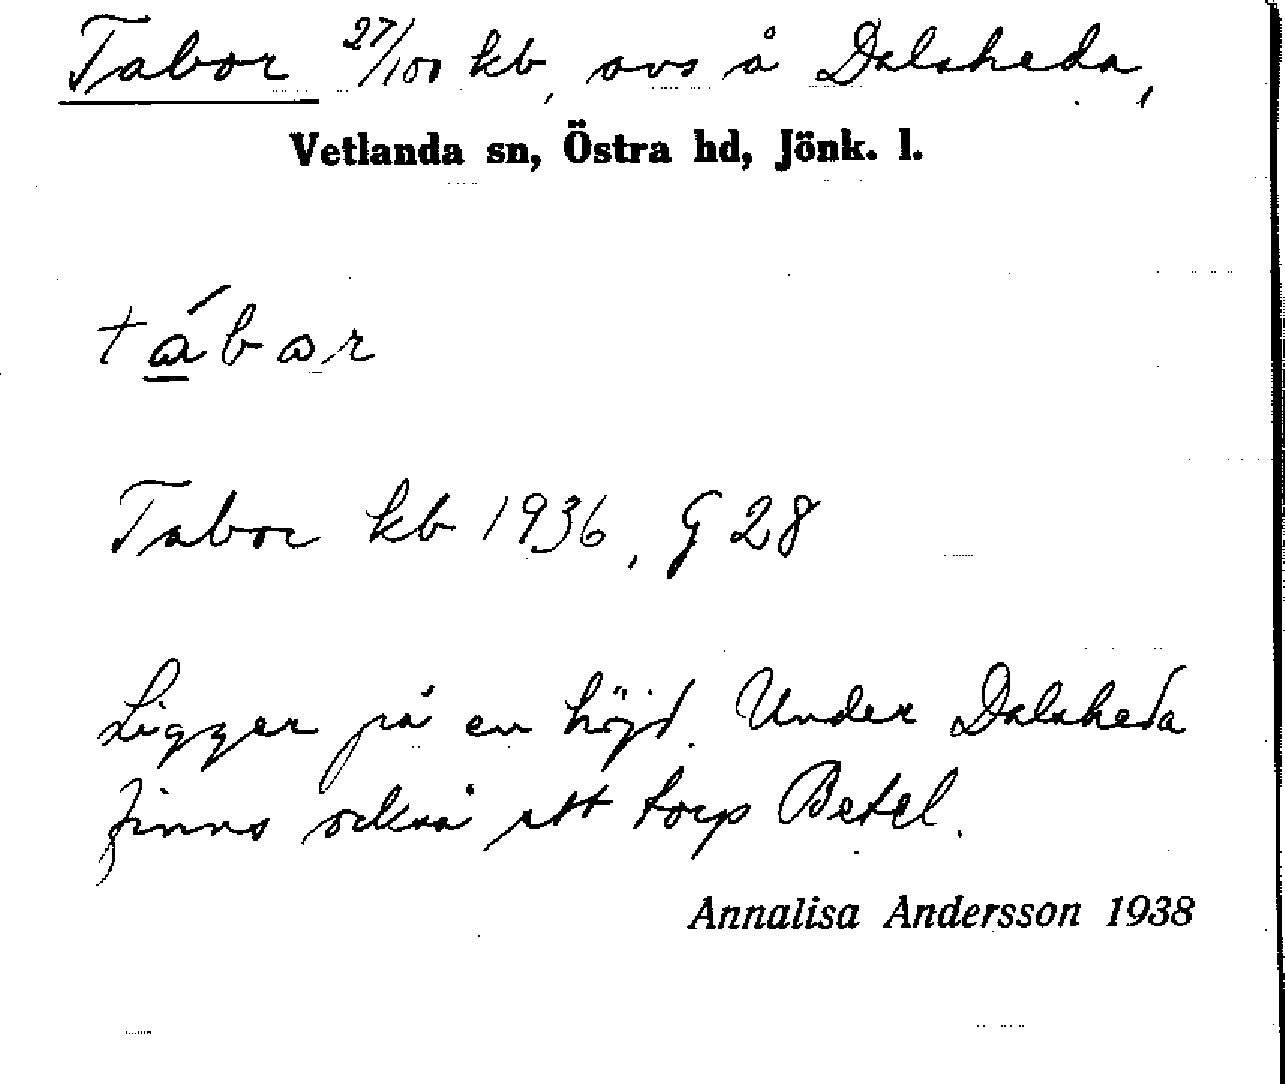 Tabor 27/100 kb, avs å Dalsheda,
Vetlanda sn, Östra hd, Jönk. l.
tábar
Tabor kb 1936, G 28
Ligger på en höjd. Under Dalsheda
finns också ett torp Betel.
Annalisa Andersson 1938